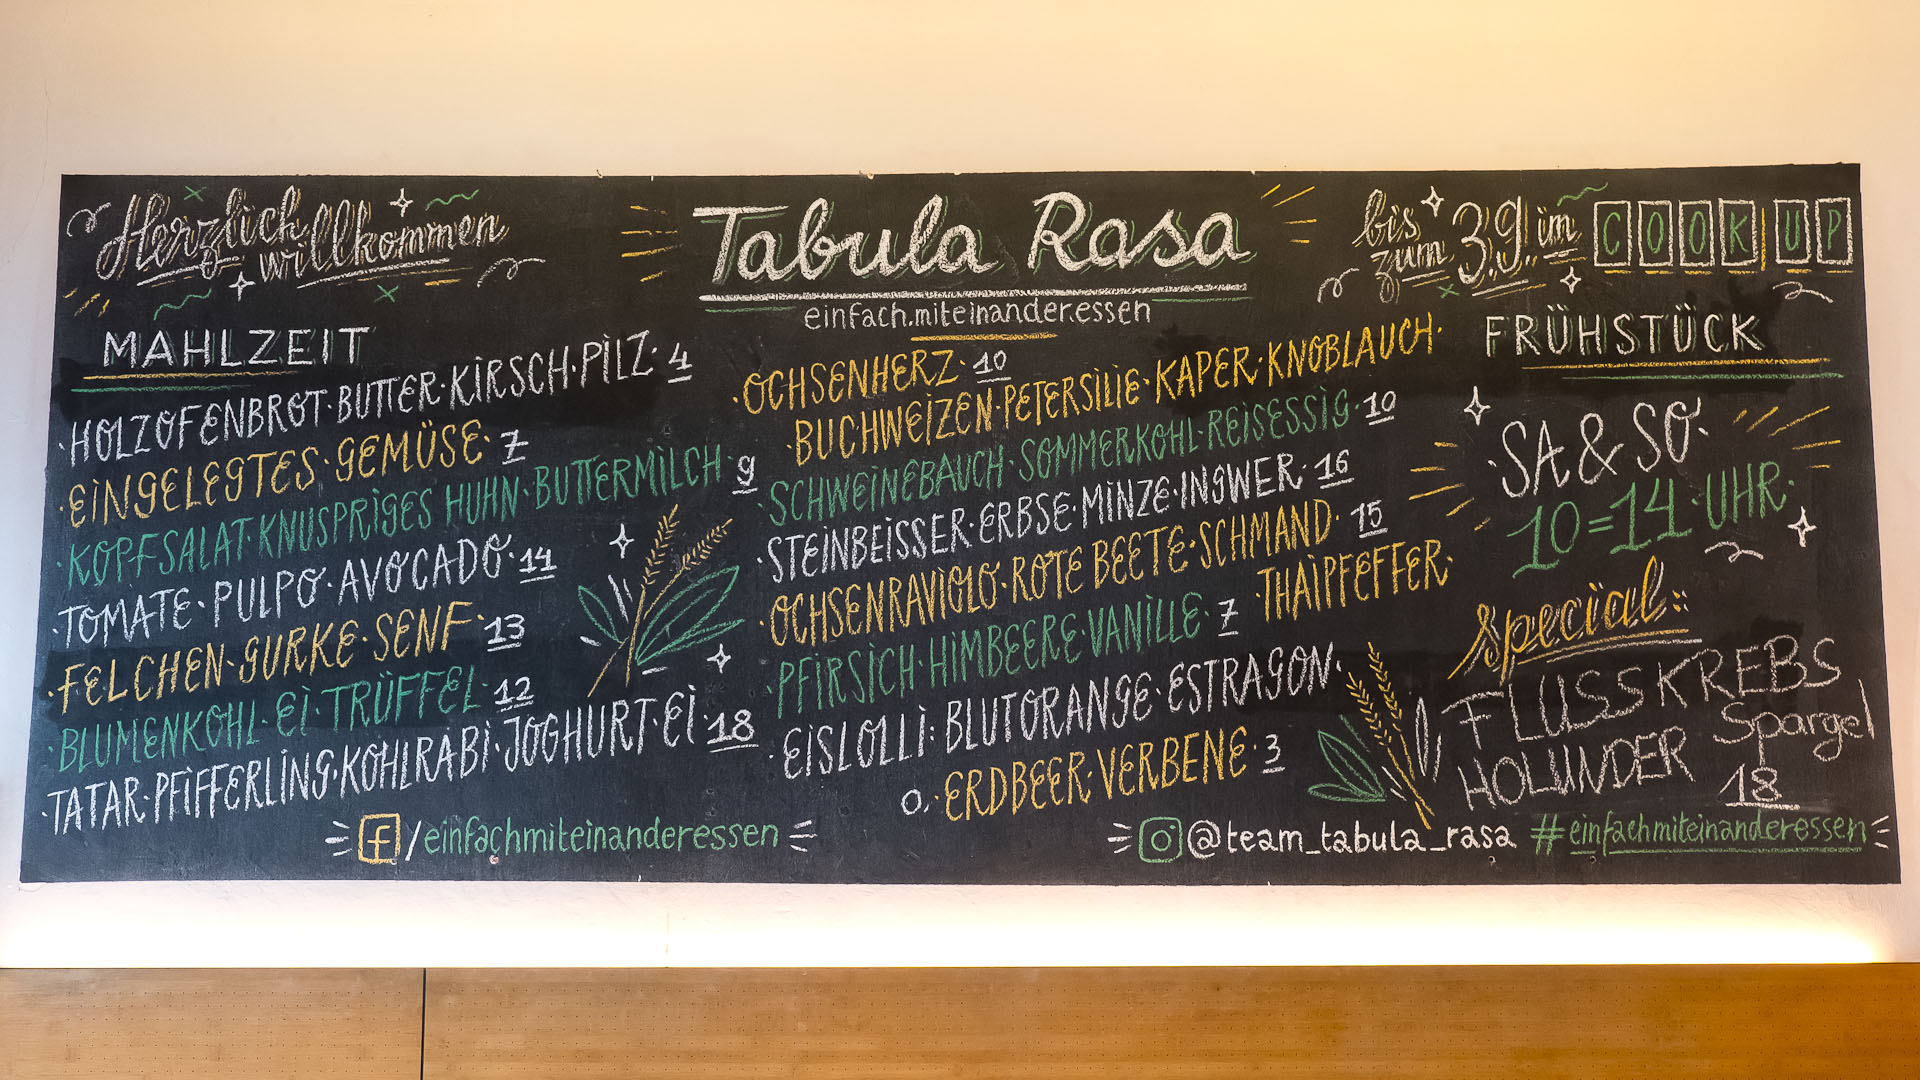 Herzlich willkommen
Tabula Rasa
einfach.miteinander.essen
bis zum 3.9. im COOK UP
MAHLZEIT
HOLZOFENBROT · BUTTER · KIRSCH · PILZ · 4
· EINGELEGTES · GEMÜSE · 7
· KOPFSALAT · KNUSPRIGES HUHN · BUTTERMILCH · 9
· TOMATE · PULPO · AVOCADO · 14
· FELCHEN · GURKE · SENF · 13
· BLUMENKOHL · EI · TRÜFFEL · 12
· TATAR · PFIFFERLING · KOHLRABI · JOGHURT · EI · 18
· OCHSENHERZ · 10
· BUCHWEIZEN · PETERSILIE · KAPER · KNOBLAUCH ·
· SCHWEINEBAUCH · SOMMERKOHL · REISESSIG · 10
· STEINBEISSER · ERBSE · MINZE · INGWER · 16
· OCHSENRAVIOLO · ROTE BEETE · SCHMAND · 15
· PFIRSICH · HIMBEERE · VANILLE · 7 · THAIPFEFFER ·
· EISLOLLI: BLUTORANGE · ESTRAGON ·
O. · ERDBEER · VERBENE · 3
FRÜHSTÜCK
· SA & SO ·
10=14 · UHR ·
Special:
FLUSSKREBS
HOLUNDER Spargel
18
f/einfachmiteinanderessen
@team_tabula_rasa #einfachmiteinanderessen